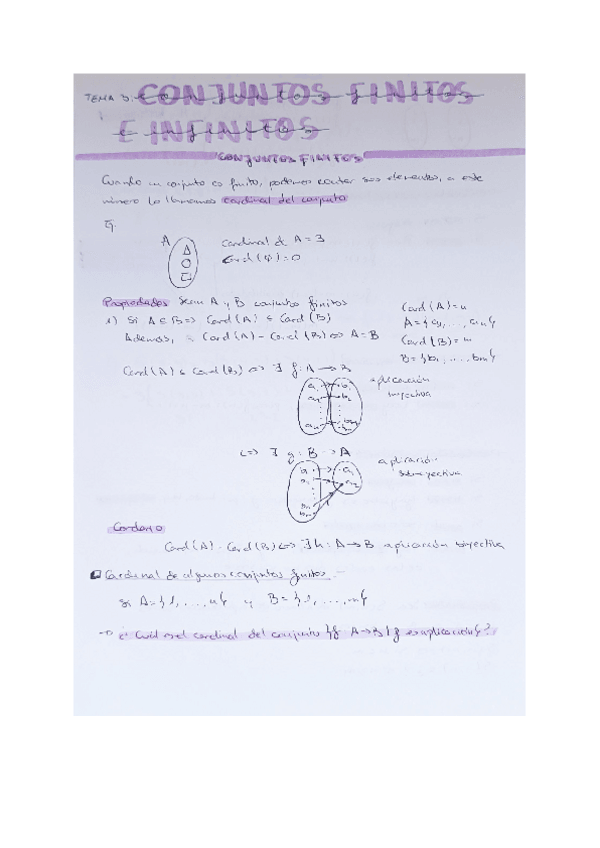 TEMA 3. CONJUNTOS FINITOS
E INFINITOS
CONJUNTOS FINITOS
Cuando un conjunto es finito, podemos contar sus elementos, a este
número lo llamamos cardinal del conjunto
Ej.
A
Cardinal de A = 3
Card(φ) = 0
Propiedades Sean A y B conjunto finitos
1) Si A ⊆ B => Card(A) ≤ Card(B)
Además, Card(A) = Card(B) <=> A = B
Card(A) = n
A = {a1, ..., an}
Card(B) = m
B = {b1, ..., bm}
Card(A) ≤ Card(B) <=> ∃ f: A → B
aplicación
inyectiva
<=> ∃ g: B → A
aplicación
sobreyectiva
Corolario
Card(A) = Card(B) <=> ∃ h: A → B aplicación biyectiva
Cardinal de algunos conjuntos finitos
Si A = {1, ..., n} y B = {1, ..., m}
¿Cuál es el cardinal del conjunto {f: A → B / f es aplicación}?